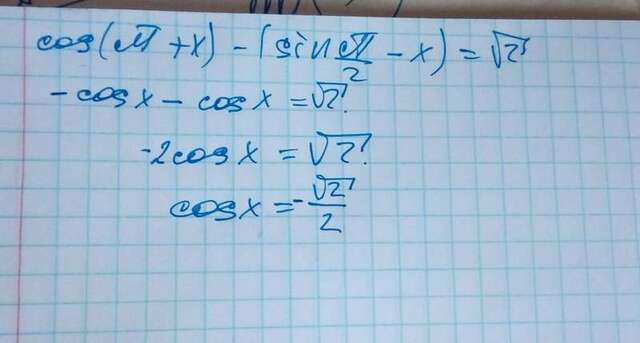 cos(π + x) - (sin π/2 - x) = √2
-cosx - cosx = √2
-2cosx = √2
cosx = -√2/2